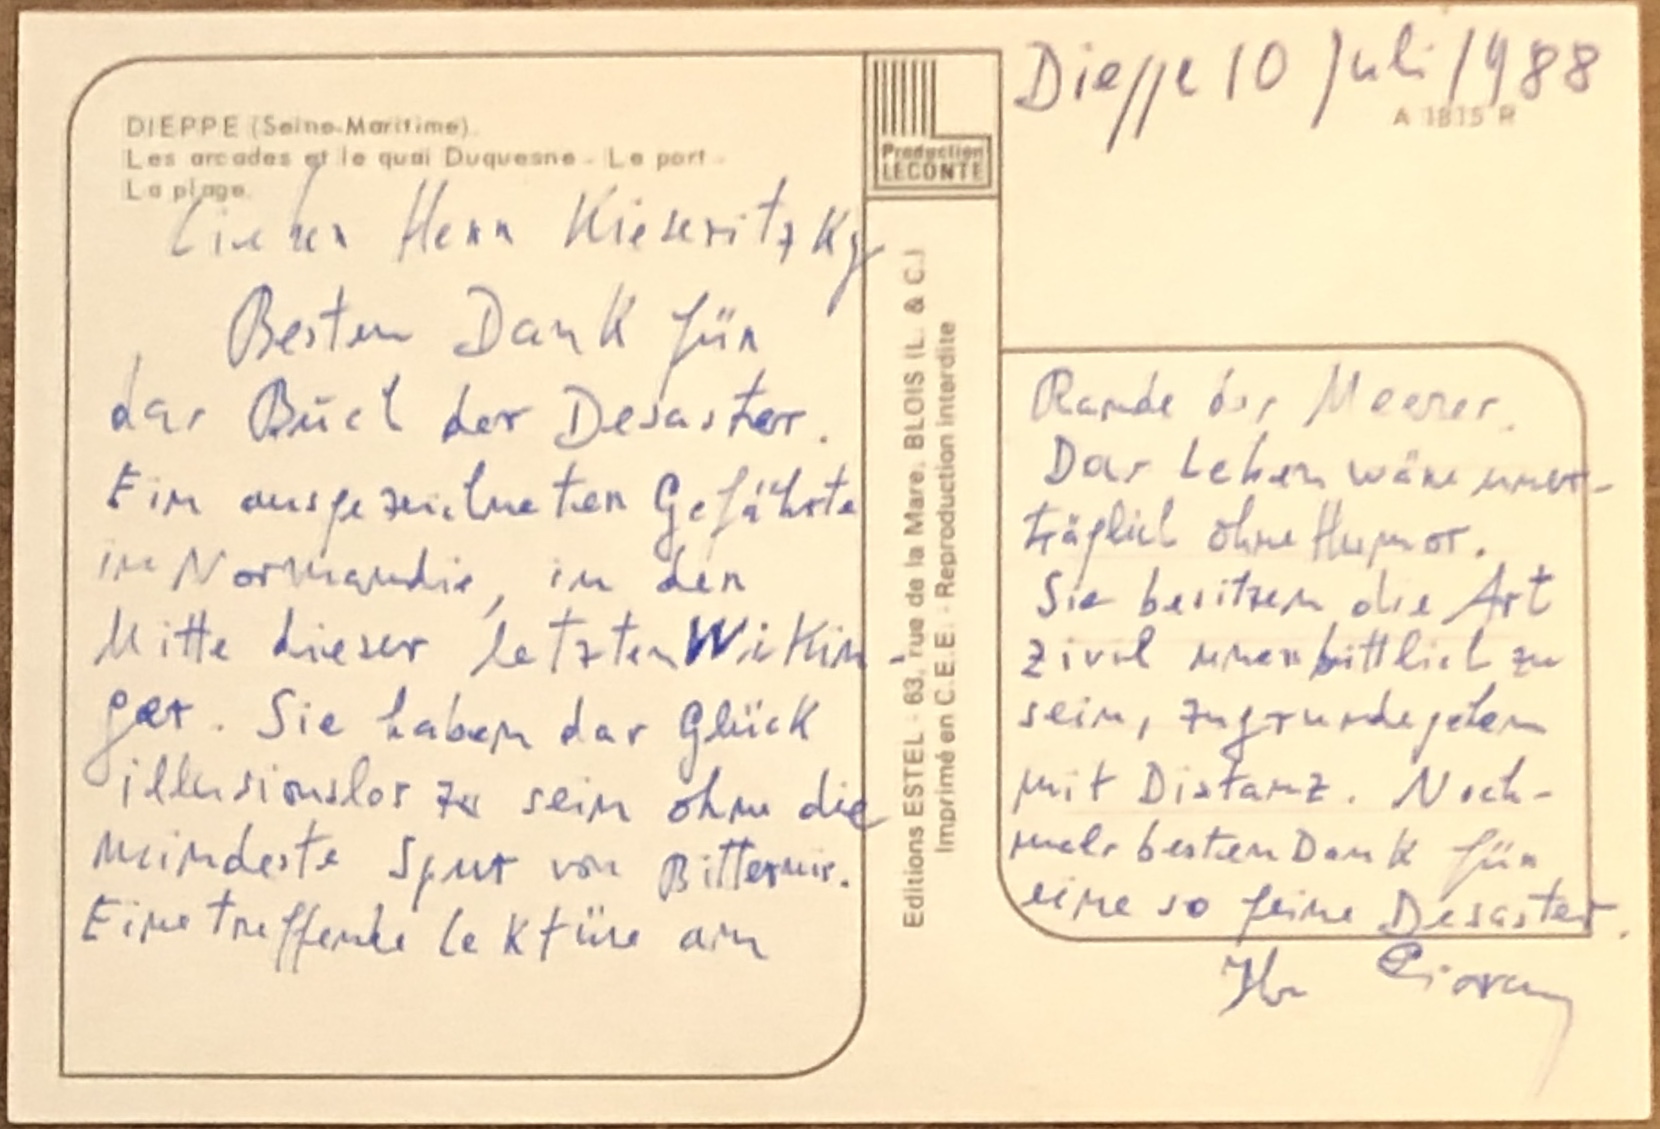 DIEPPE (Seine-Maritime).
Les arcades et le quai Duquesne - Le port -
La plage.
Production
LECONTE
A 1815 R
Editions ESTEL - 63, rue de la Mare. BLOIS (L. & C.)
Imprimé en C.E.E. - Reproduction interdite
Dieppe 10 Juli 1988
Lieber Herr Kieseritzky
Besten Dank für
das Buch der Desaster.
Ein ausgezeichneter Gefährte
in Normandie, in der
Mitte dieser letzten Wikin-
ger. Sie haben das Glück
illusionslos zu sein ohne die
mindeste Spur von Bitternis.
Eine treffende Lektüre am
Rande des Meeres.
Das Leben wäre uner-
träglich ohne Humor.
Sie besitzen die Art
zivil unerbittlich zu
sein, zugrundegehen
mit Distanz. Noch-
mals besten Dank für
eine so feine Desaster.
Ihr Cioran